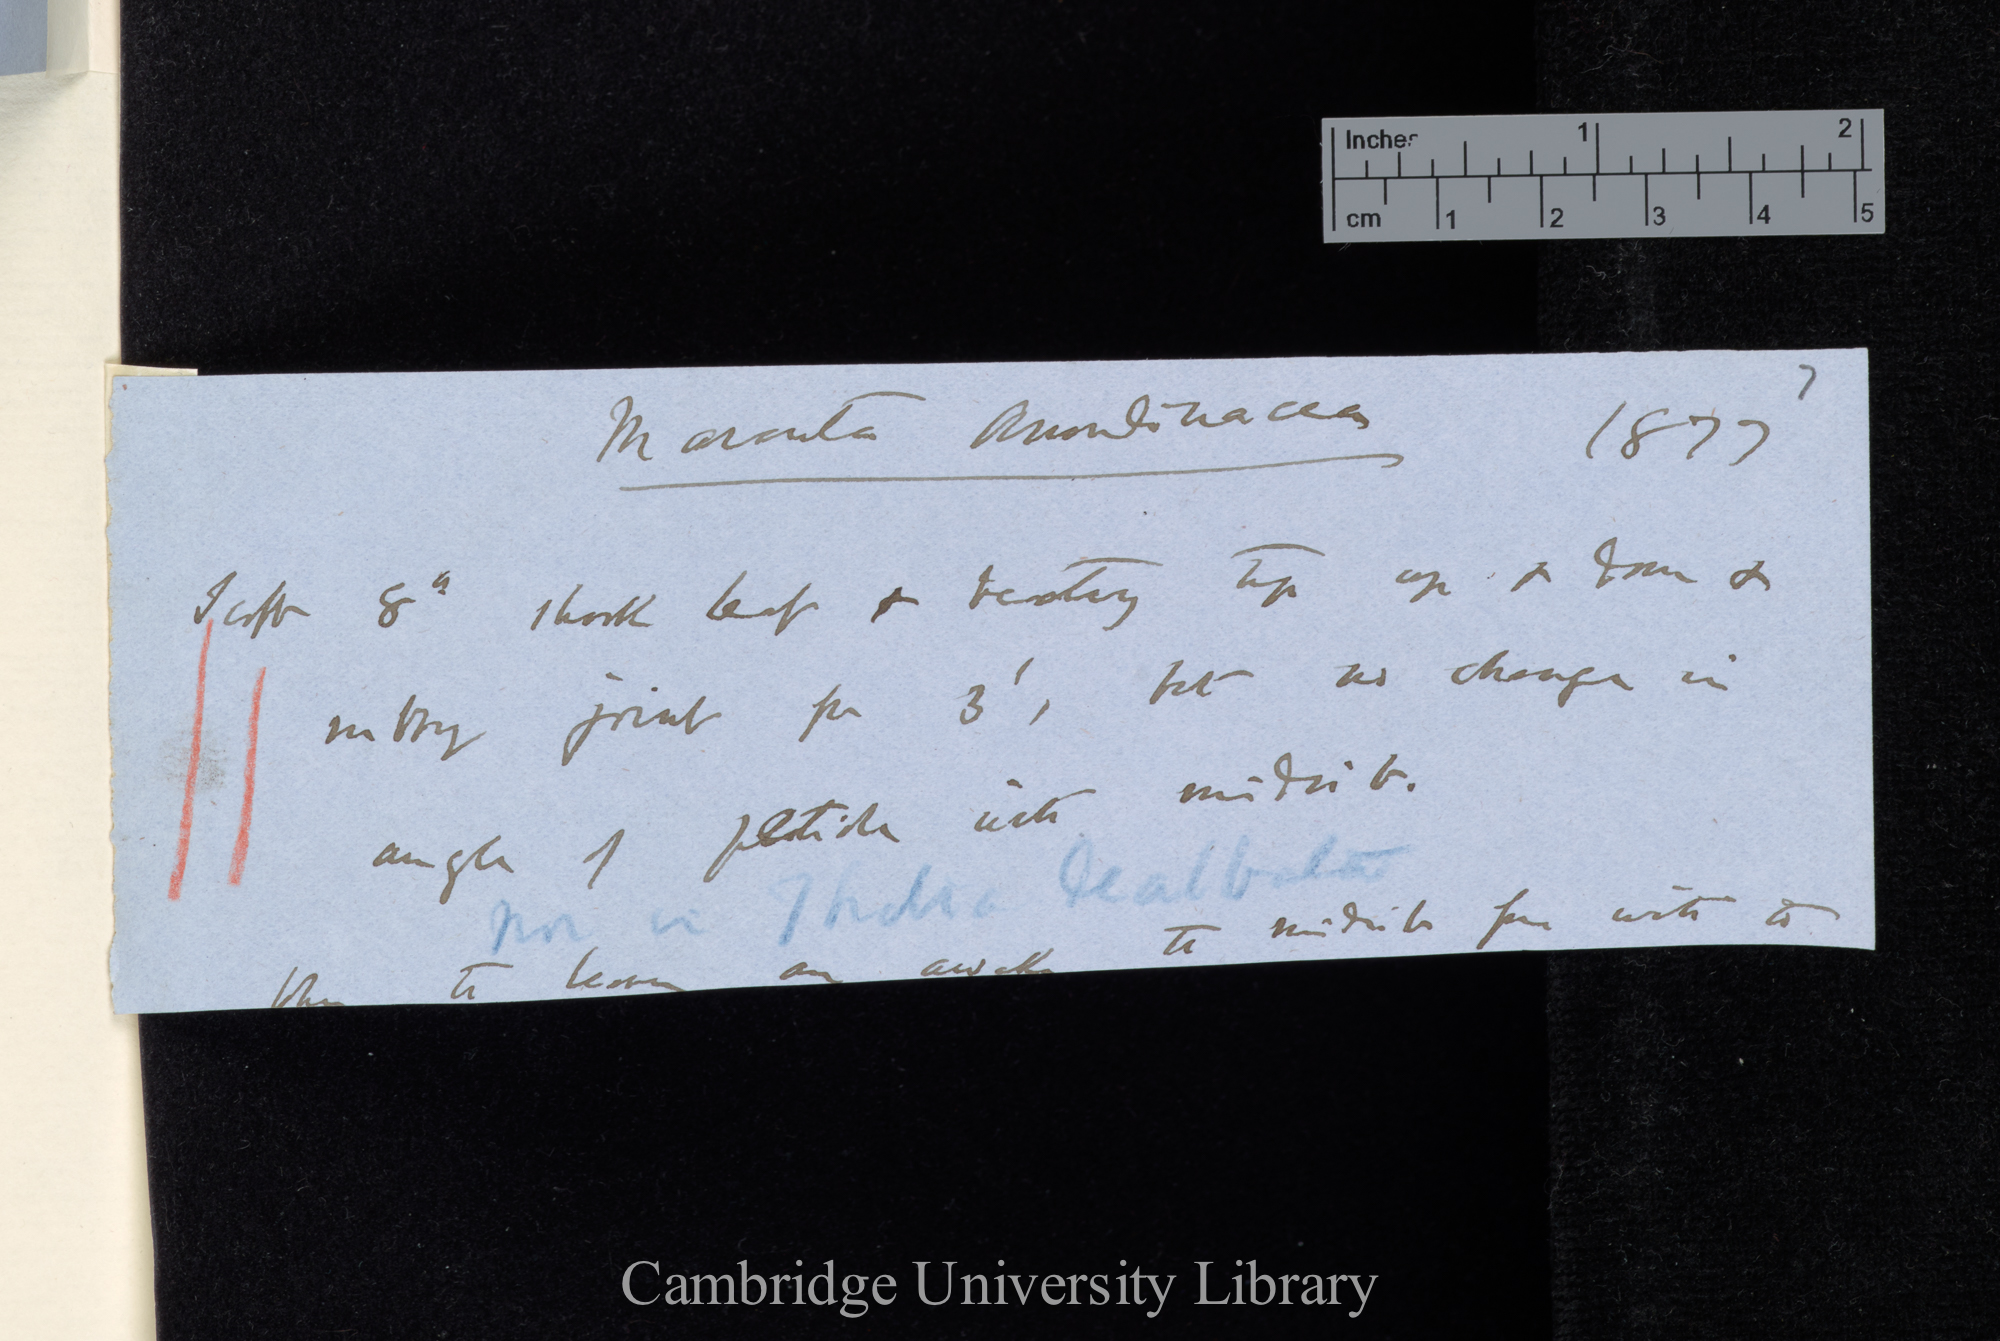 Inches 1 2
cm 1 2 3 4 5
7
Maranta Arundinacea 1877
Sept 8th shook leaf & beating tip up & down &
rubbing joint for 3', but no change in
angle of petiole with midrib.
nor in Thalia dealbata
to leaves are awake to midrib for with to
Cambridge University Library